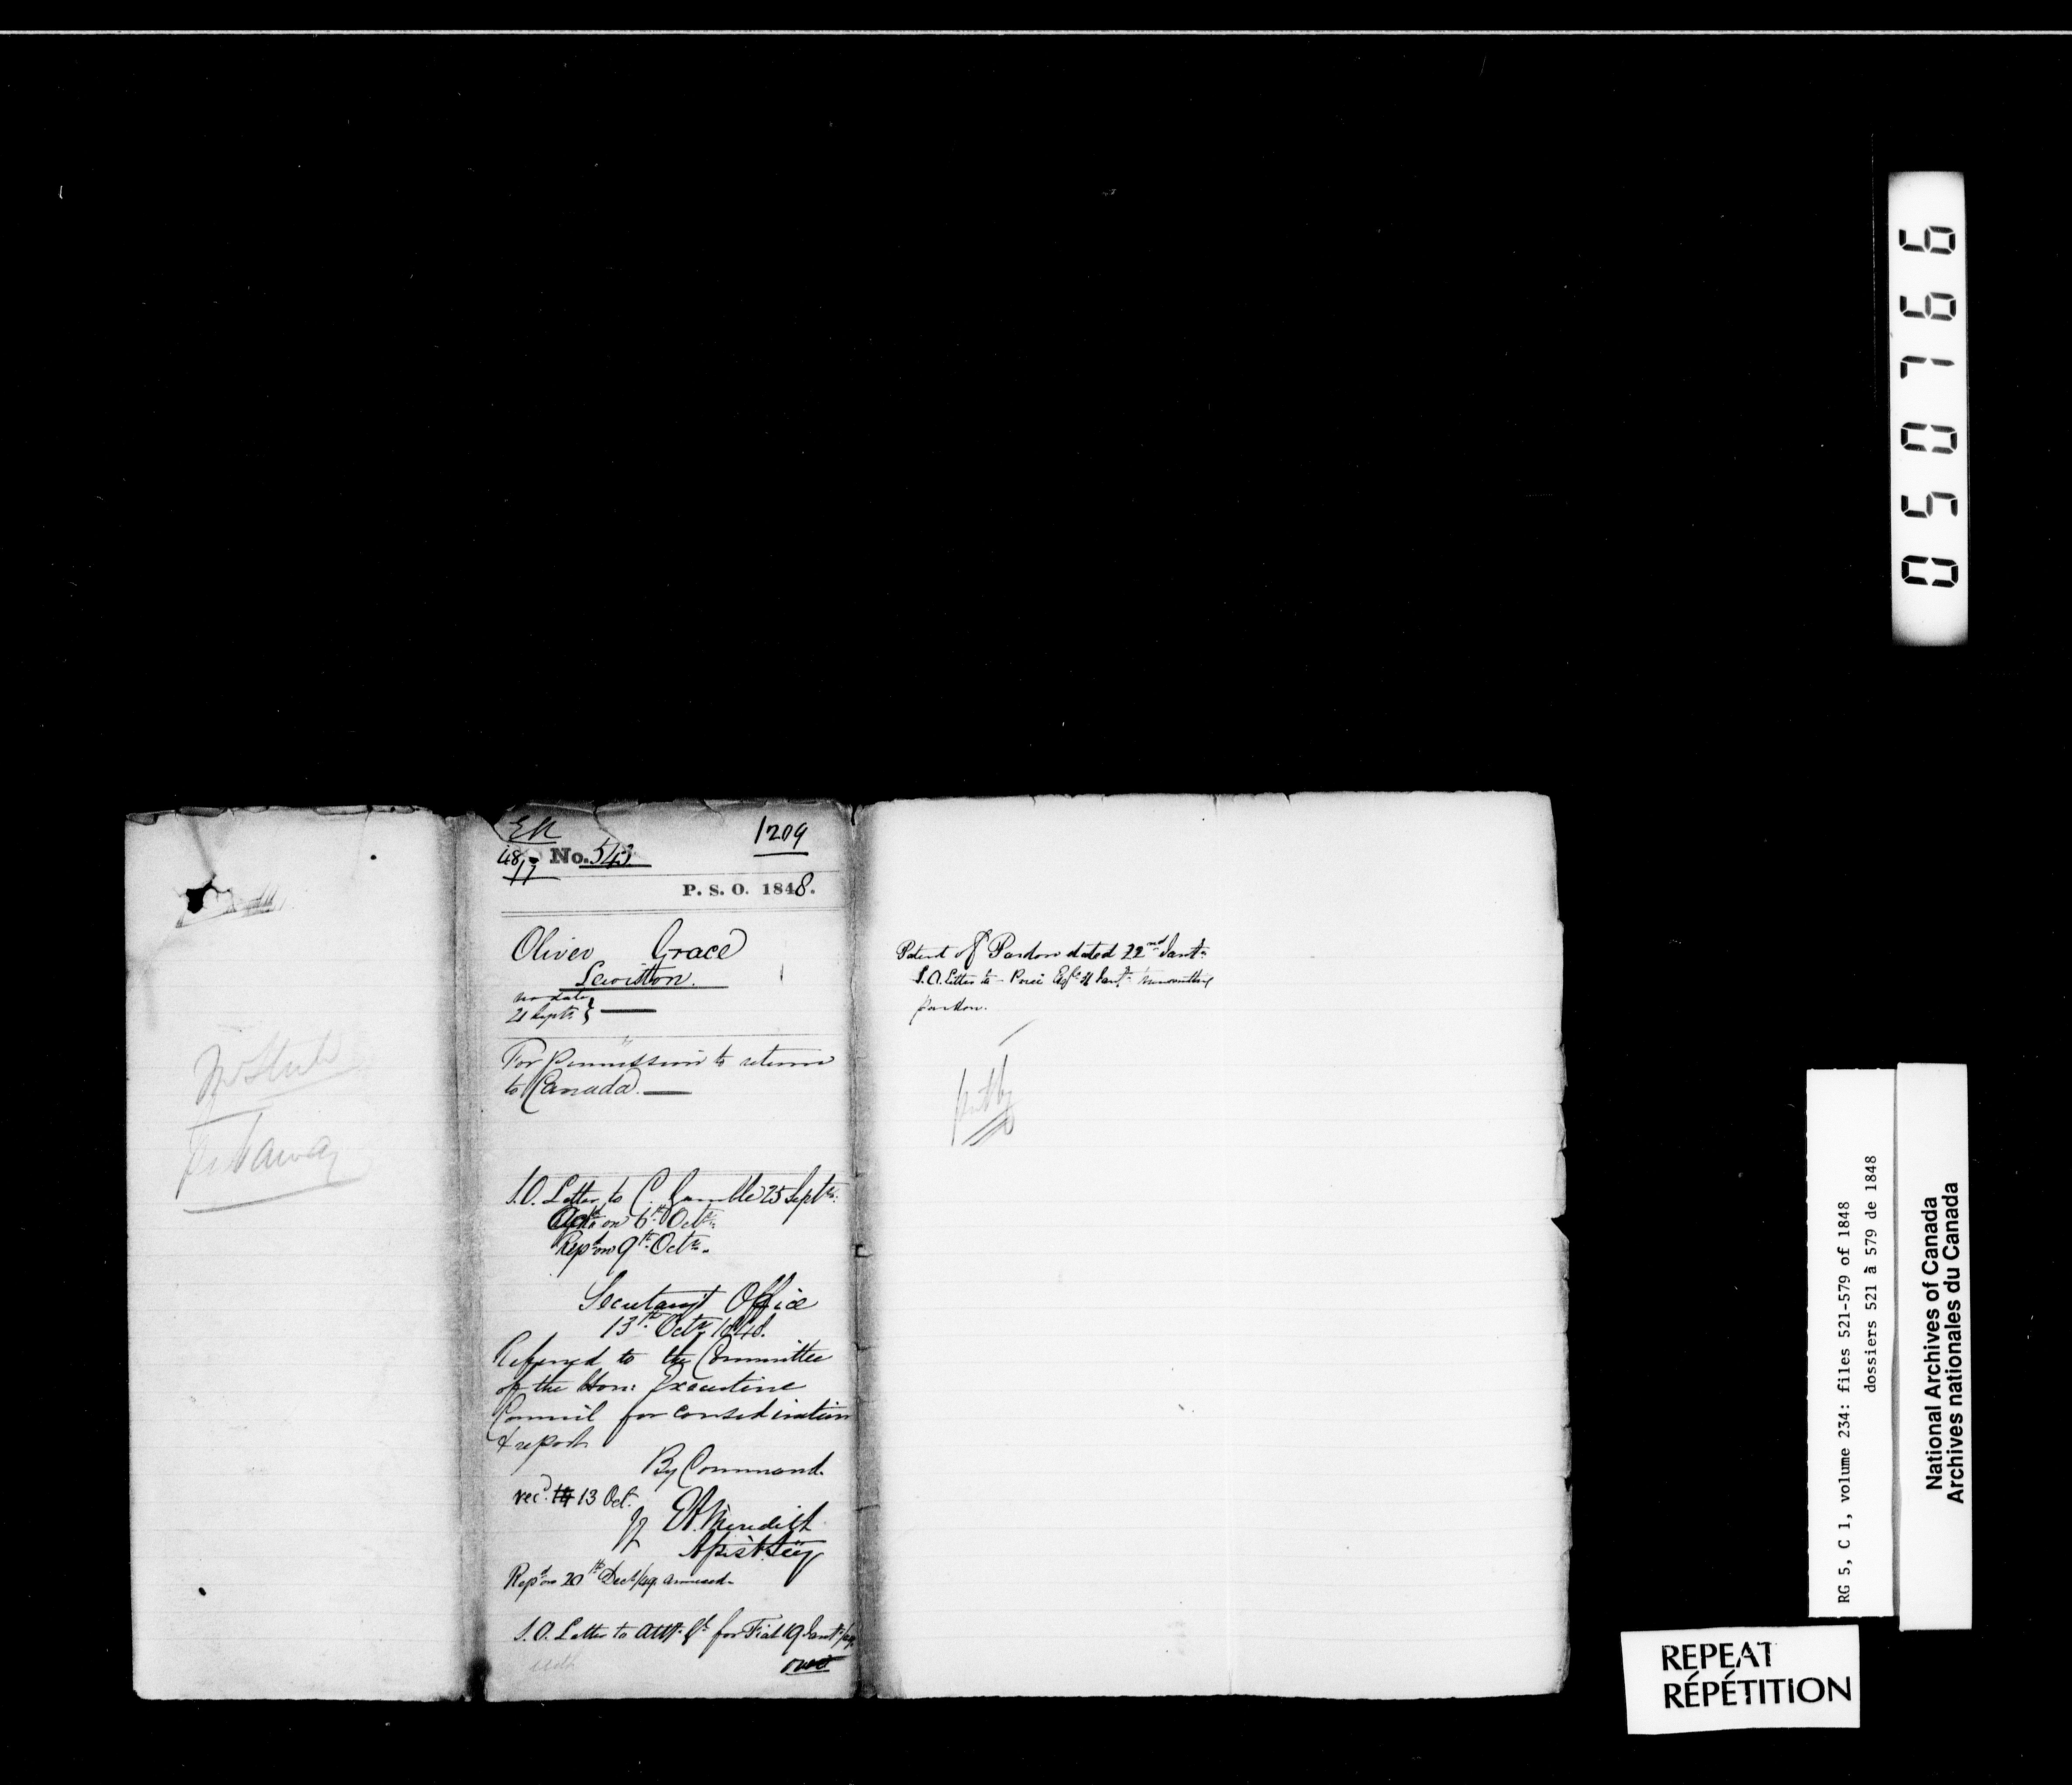 ER
1209
48/17 No. 543
P. S. O. 1848.
Oliver Grace
Lewiston.
no date
21 Septr }
For Permission to return
to Canada.
S.O. Letter to C. Gamble 25 Septr.
on 6th Octr.
Repd on 9th Octr.
Secretary's Office
13th Octr. 1848.
Referred to the Committee
of the Hon: Executive
Council for consideration
& report
By Command.
recd. 14 13 Oct.
E A Meredith
Assist. Secy
Repd on 20th Decr/49 annexed.
S.O. Letter to Atty. Gl. for Fiat 19 Jany/49
over
Patent of Pardon dated 22nd Jany.
S.O. Letter to Price Esqre Jany. transmitting
pardon.
put by
Mr Steele
Put away
050766
RG 5, C 1, volume 234: files 521-579 of 1848
dossiers 521 à 579 de 1848
National Archives of Canada
Archives nationales du Canada
REPEAT
RÉPÉTITION